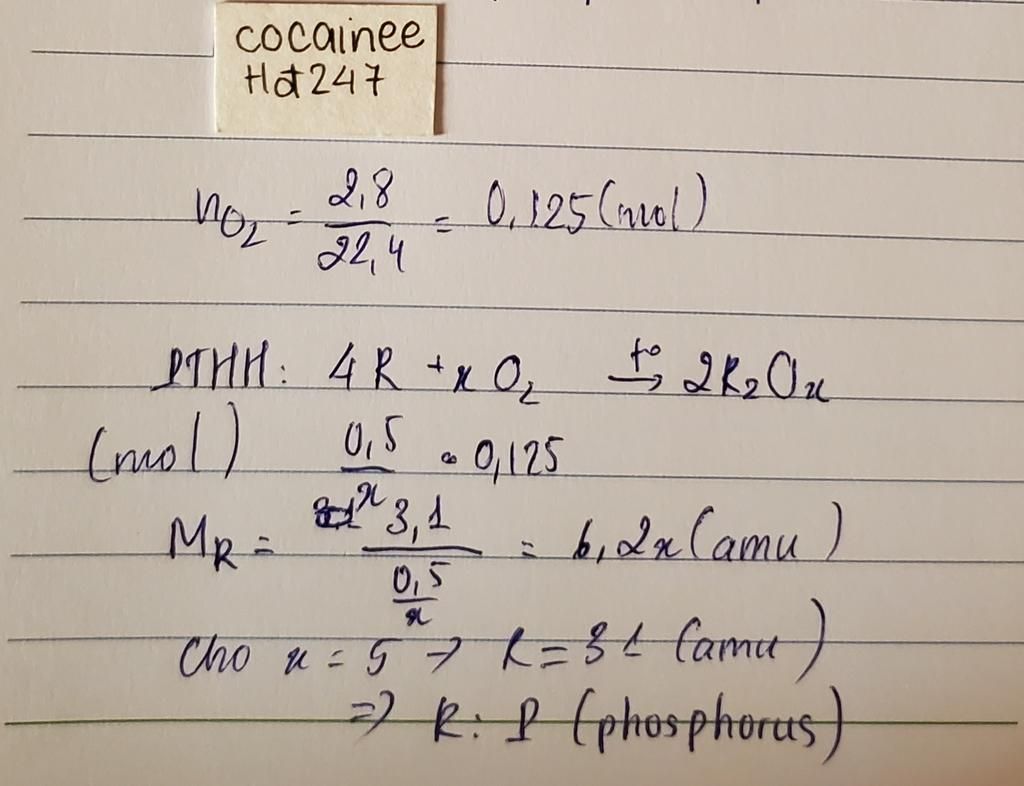 cocainee
Hđt247
nO₂ = 2,8/22,4 = 0,125 (mol)
PTHH: 4R + xO₂ →t° 2R₂Oₓ
(mol) 0,5/x ← 0,125
M_R = 3,1/(0,5/x) = 6,2x (amu)
Cho x = 5 → R = 31 (amu)
=> R: P (phosphorus)